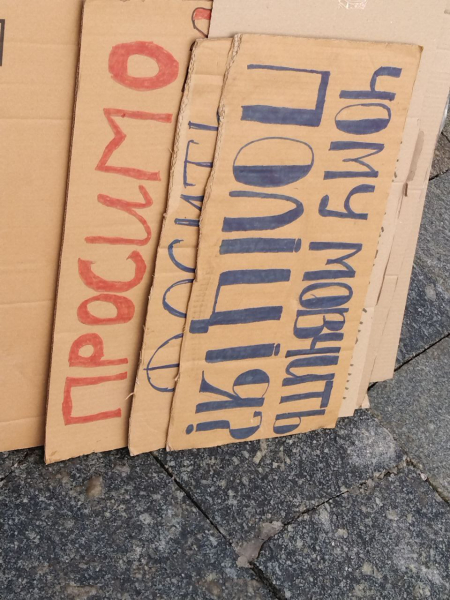 ПРОСИМО
ЧОМУ МОВЧИТЬ
ПОЛІЦІЯ?